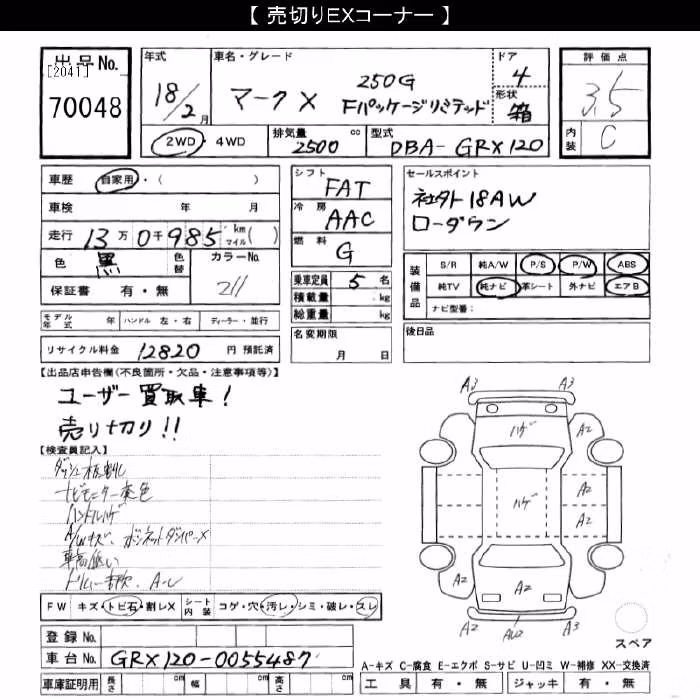 【 売切りEXコーナー 】
出品No. [2041] 70048
年式 18/2月
車名・グレード マークX 250G Fパッケージリミテッド
ドア 4
形状 箱
評価点 3.5
内装 C
2WD・4WD
排気量 2500 cc
型式 DBA-GRX120
車歴 自家用・( )
車検 年 月
走行 13万0千985 km マイル( )
色 黒 色替 カラーNo. 211
保証書 有・無
シフト FAT
冷房 AAC
燃料 G
乗車定員 5名
積載量 kg
総重量 kg
名変期限 月 日
セールスポイント
社外18AW
ローダウン
装備品 S/R 純A/W P/S P/W ABS
純TV 純ナビ 革シート 外ナビ エアB
ナビ型番:
後日品
モデル年式 年 ハンドル 左・右 ディーラー・並行
リサイクル料金 12820 円 預託済
【出品店申告欄(不良箇所・欠品・注意事項等)】
ユーザー買取車!
売り切り!!
【検査員記入】
ナビモニター変色
ハンドルハゲ
A/Wキズ、ボンネットダンパーX
車高低い
FW キズ・トビ石・割レX シート内装 コゲ・穴・汚レ・シミ・破レ・スレ
登録No.
車台No. GRX120-0055487
車庫証明用 長さ cm 幅 cm 高さ cm
A3 A3
ハゲ A2
ハゲ A2
A2
A2 A2
A2 AU2 A2
スペア
A-キズ C-腐食 E-エクボ S-サビ U-凹ミ W-補修 XX-交換済
工具 有・無 ジャッキ 有・無